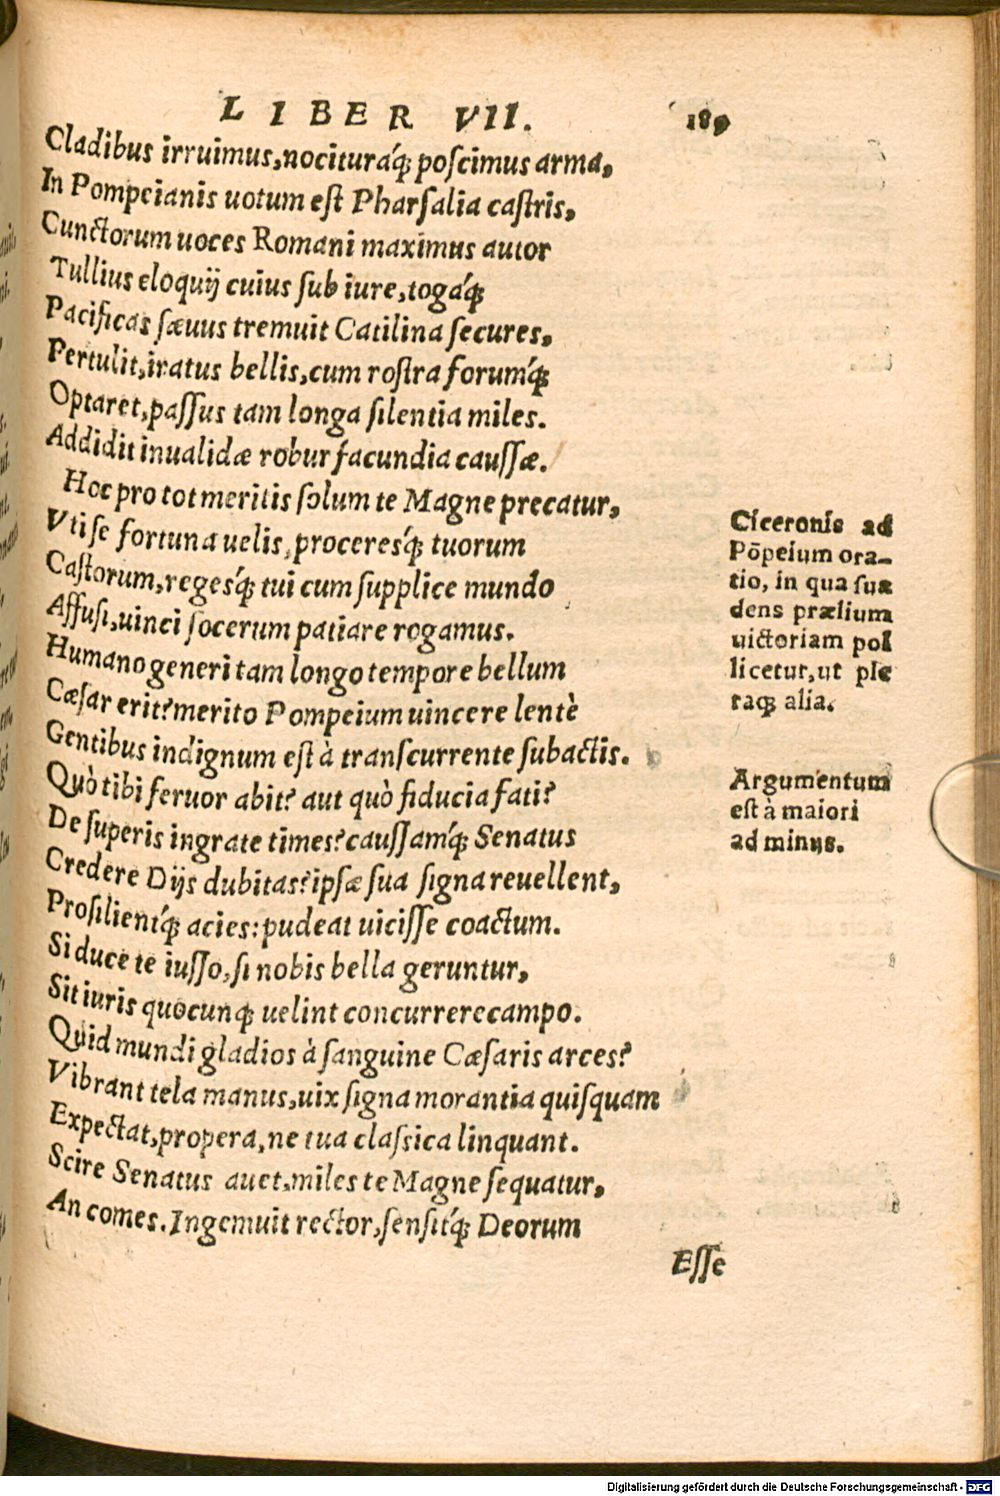 LIBER VII. 189
Cladibus irruimus,nocituráq; poſcimus arma,
In Pompeianis uotum eſt Pharſalia caſtris,
Cunctorum uoces Romani maximus autor
Tullius eloquij cuius ſub iure,togáq;
Pacificas ſæuus tremuit Catilina ſecures,
Pertulit,iratus bellis,cum roſtra forumq́;
Optaret,paſſus tam longa ſilentia miles.
Addidit inualidæ robur facundia cauſſæ.
Hoc pro tot meritis ſolum te Magne precatur,
Vti ſe fortuna uelis,proceresq́; tuorum
Caſtorum,regesq́; tui cum ſupplice mundo
Affuſi,uinci ſocerum patiare rogamus.
Humano generi tam longo tempore bellum
Cæſar erit?merito Pompeium uincere lentè
Gentibus indignum eſt à tranſcurrente ſubactis.
Quò tibi feruor abit? aut quò fiducia fati?
De ſuperis ingrate times?cauſſamq́; Senatus
Credere Dijs dubitas?ipſæ ſua ſigna reuellent,
Proſilientq́; acies:pudeat uiciſſe coactum.
Si duce te iuſſo,ſi nobis bella geruntur,
Sit iuris quocunq; uelint concurrere campo.
Quid mundi gladios à ſanguine Cæſaris arces?
Vibrant tela manus,uix ſigna morantia quiſquam
Expectat,propera,ne tua claſſica linquant.
Scire Senatus auet,miles te Magne ſequatur,
An comes.Ingemuit rector,ſenſitq́; Deorum
Eſſe
Ciceronis ad
Põpeium ora-
tio, in qua ſua
dens prælium
uictoriam pol
licetur,ut ple
raq; alia.
Argumentum
eſt à maiori
ad minus.
Digitalisierung gefördert durch die Deutsche Forschungsgemeinschaft - DFG